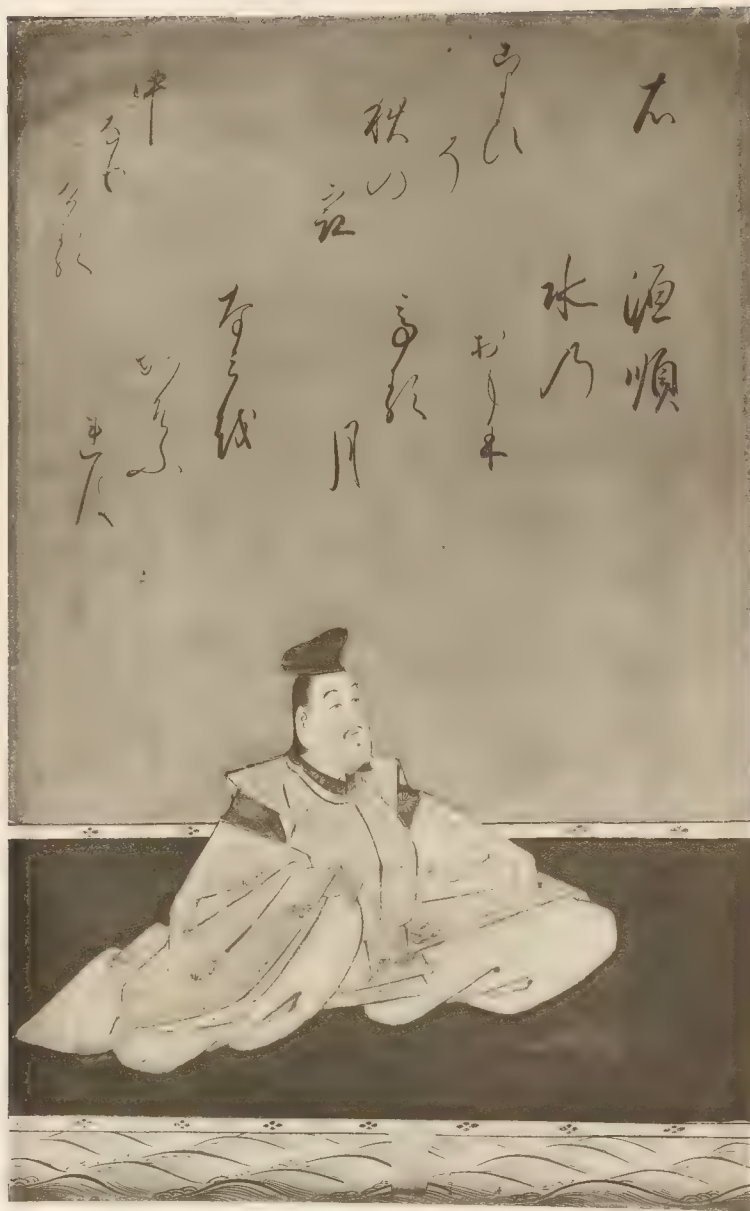 右
源順
水乃
おもに
てる
月
なみ越
かそふ
連は
こよひ
そ
秋の
中
なり
ける